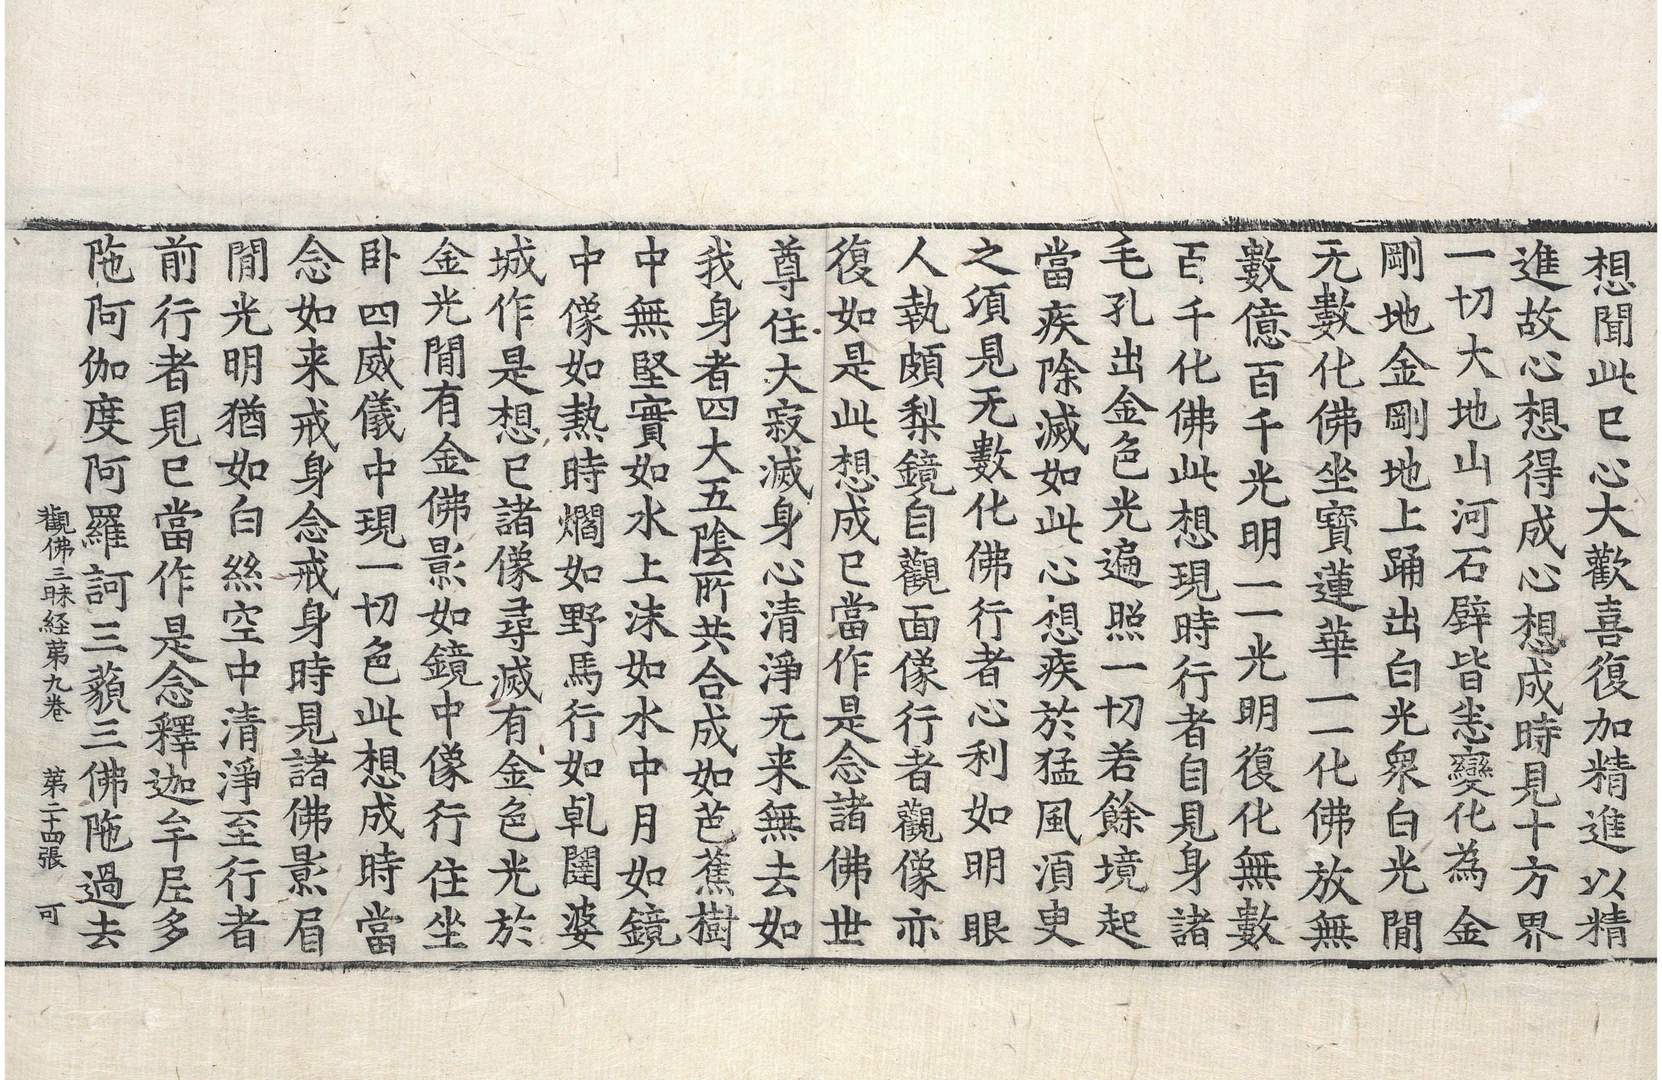 想聞此已心大歡喜復加精進以精
進故心想得成心想成時見十方界
一切大地山河石壁皆悉變化為金
剛地金剛地上踊出白光衆白光閒
无數化佛坐寶蓮華一一化佛放無
數億百千光明一一光明復化無數
百千化佛此想現時行者自見身諸
毛孔出金色光遍照一切若餘境起
當疾除滅如此心想疾於猛風湏臾
之湏見无數化佛行者心利如明眼
人執頗梨鏡自觀面像行者觀像亦
復如是此想成已當作是念諸佛世
尊住大寂滅身心清淨无来無去如
我身者四大五陰所共合成如芭蕉樹
中無堅實如水上沫如水中月如鏡
中像如熱時爓如野馬行如乹闥婆
城作是想已諸像尋滅有金色光於
金光閒有金佛影如鏡中像行住坐
卧四威儀中現一切色此想成時當
念如来戒身念戒身時見諸佛影眉
閒光明猶如白絲空中清淨至行者
前行者見已當作是念釋迦牟尼多
陁阿伽度阿羅訶三藐三佛陁過去
觀佛三昧経苐九卷 苐二十四張 可